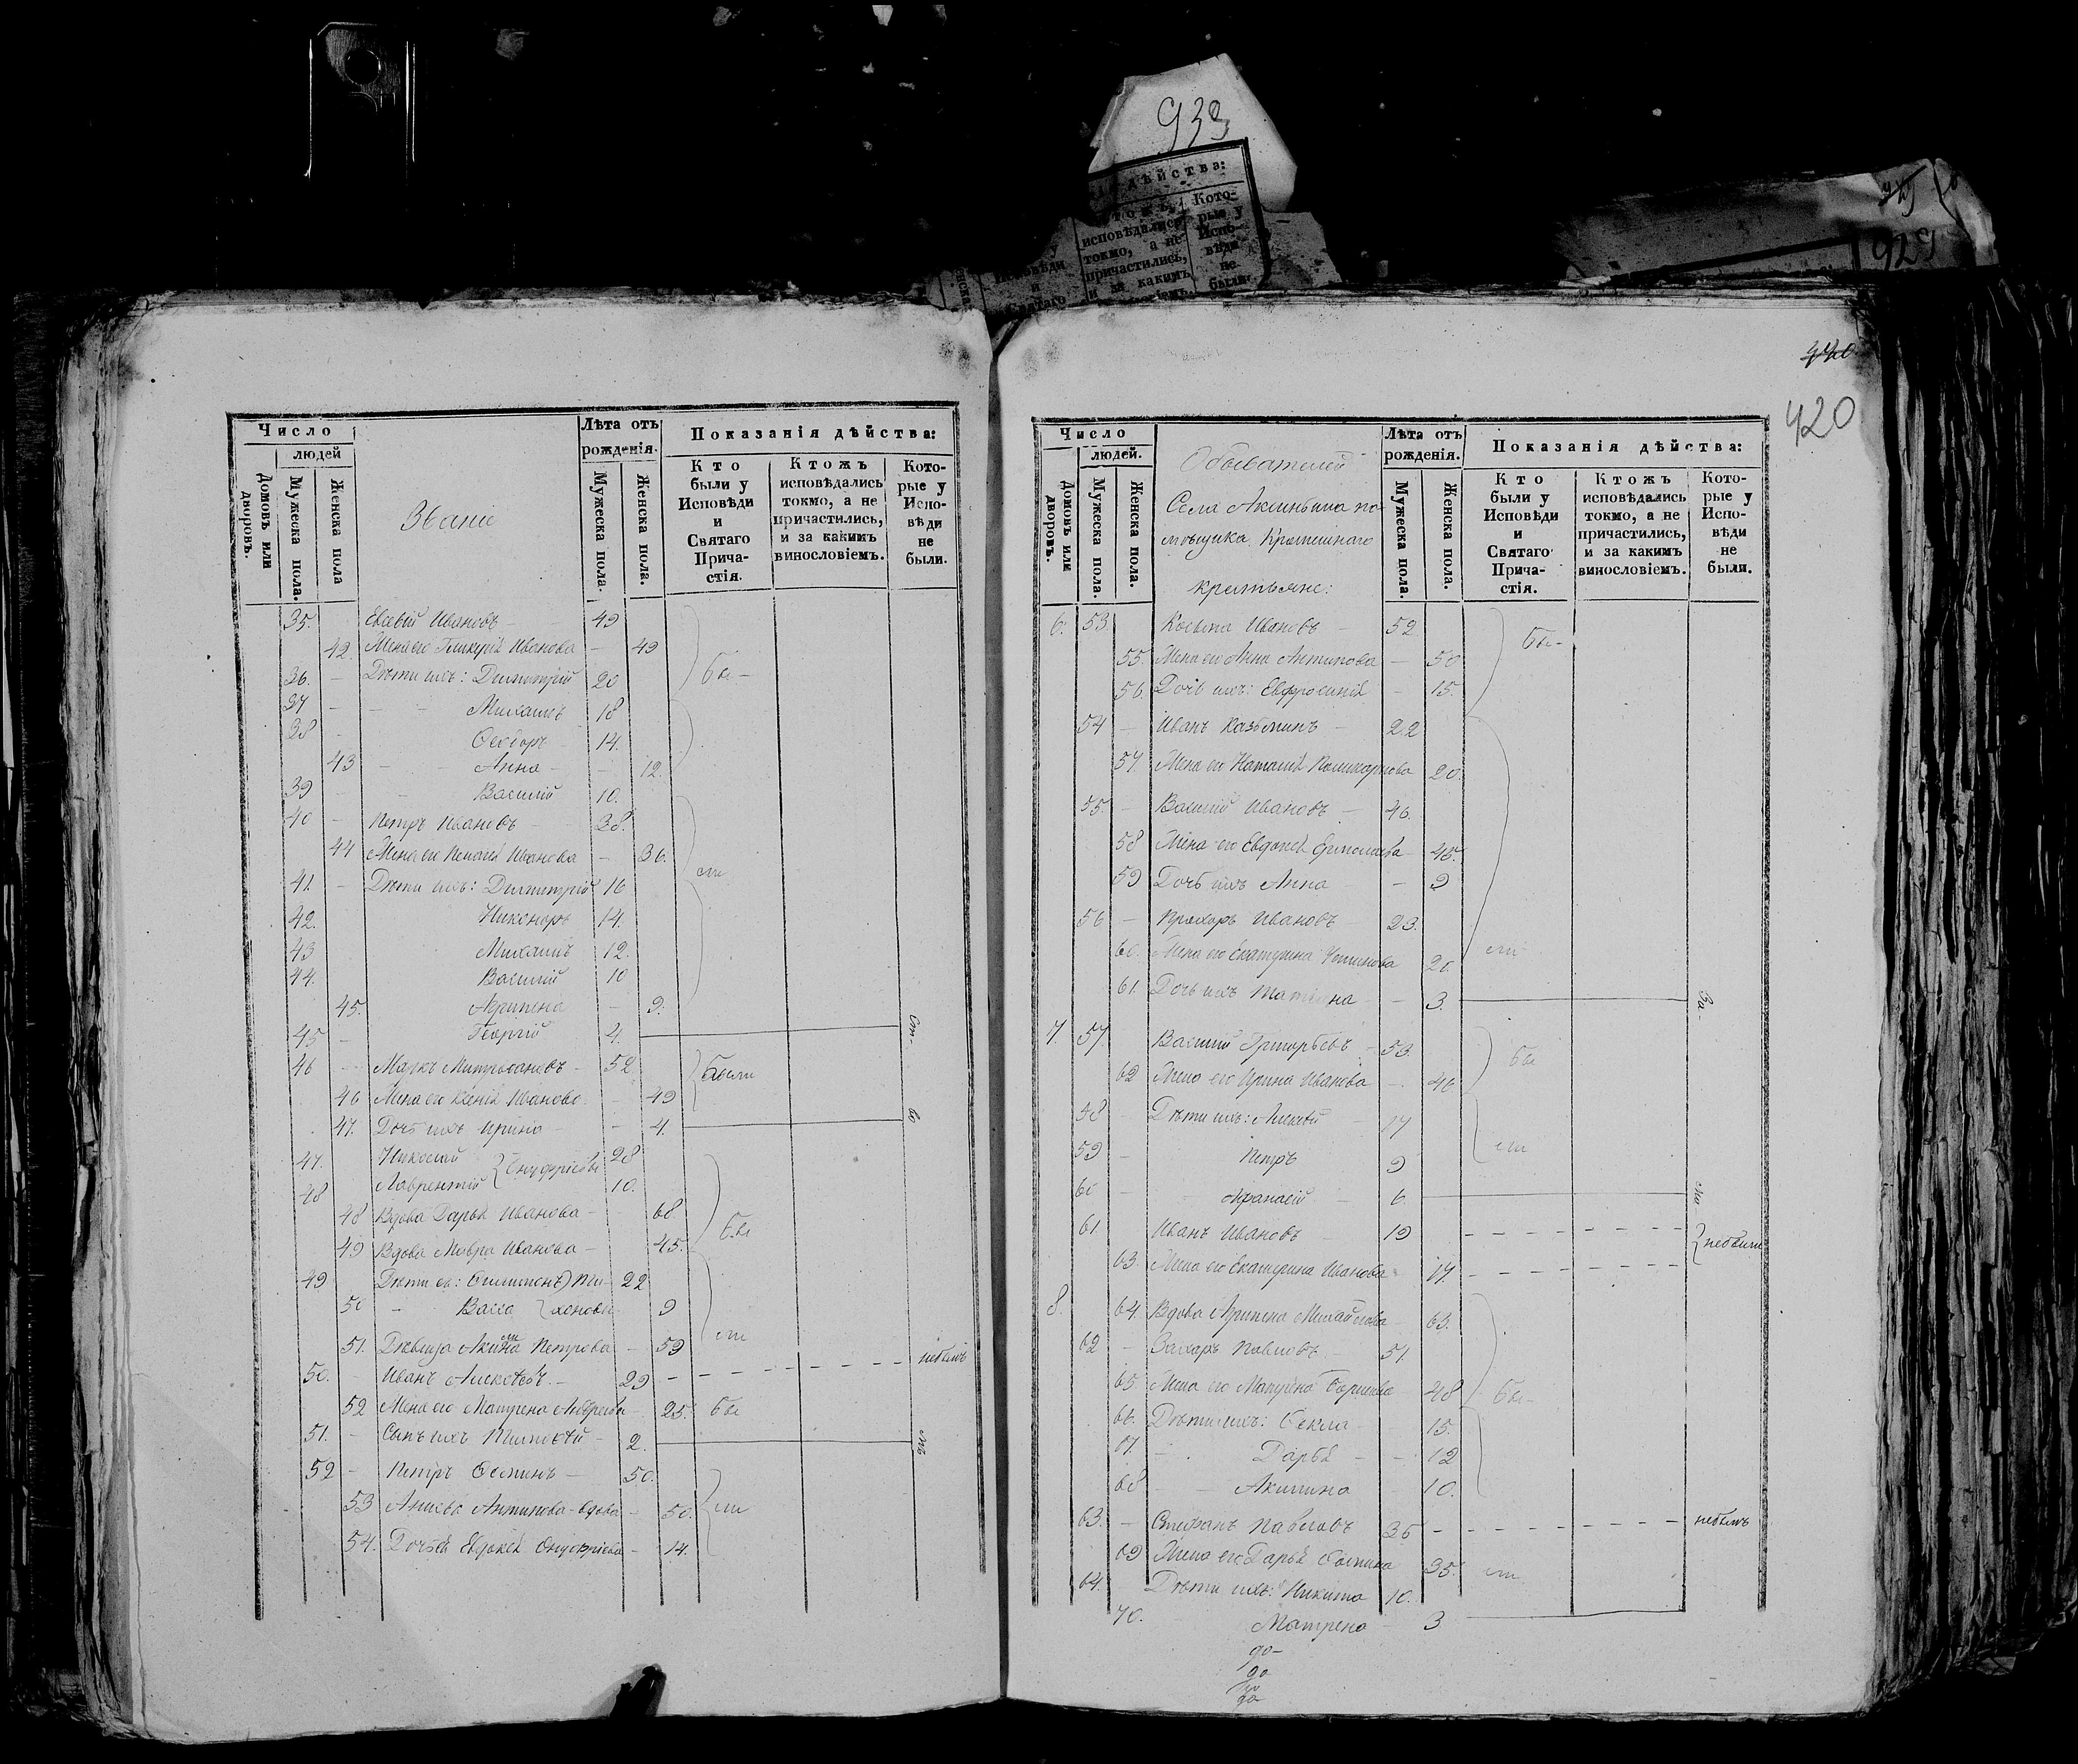 933
дѣйства:
Кото-
рые у
исповѣдались
токмо, а не
Испо-
вѣди
причастились,
не
и за какимъ
были
Святаго
929
420
420
Число
людей
Домовъ или дворовъ.
Мужеска пола.
Женска пола
Званіе
Лѣта отъ
рожденія.
Мужеска пола.
Женска пола.
Показанія дѣйства:
Кто
были у
Исповѣди
и
Святаго
Прича-
стія.
Ктожъ
исповѣдались
токмо, а не
причастились,
и за какимъ
винословіемъ.
Кото-
рые у
Испо-
вѣди
не
были.
35. Евсевій Ивановъ 49
42. Жена его Гликерія Иванова 49
36. Дѣти ихъ: Димитрій 20 бы-
37 Михаилъ 18
38 Ѳеодоръ 14.
43 Анна 12.
39 Василій 10.
40 Петръ Ивановъ 38.
44 Жена его Пелагія Иванова 36.
41. Дѣти ихъ: Димитрій 16 ли
42. Никоноръ 14.
43 Михаилъ 12.
44. Василій 10
45. Агрипена 9.
45 Георгій 4.
46 Маркъ Митрофановъ 52 были
46 Жена его Ксенія Иванова 49
47. Дочь ихъ Ирина 4.
47. Николай 28
48 Лаврентій Онуфріевы 10.
48 Вдова Дарья Иванова 68
49 Вдова Мавра Иванова 45. бы
49 Дѣти ея: Филимонъ 22
50 Васса 9
51. Дѣвица Акилина Петрова 59 ли
50. Иванъ Алексѣевъ 29 небылъ
52 Жена его Матрена Андреева 25. бы
51. Сынъ ихъ Тимофей 2.
52 Петръ Осиповъ 50.
53 Анисья Антипова вдова 50. ли
54. Дочь ея Евдокія Онуфріева 14.
Число
людей.
Домовъ или дворовъ.
Мужеска пола.
Женска пола.
Обывателей
Села Акиньина по-
мѣщика
крестьяне:
Лѣта отъ
рожденія.
Мужеска пола.
Женска пола.
Показанія дѣйства:
Кто
были у
Исповѣди
и
Святаго
Прича-
стія.
Ктожъ
исповѣдались
токмо, а не
причастились,
и за какимъ
винословіемъ.
Кото-
рые у
Испо-
вѣди
не
были.
6. 53. Косьма Ивановъ 52 бы-
55. Жена его Анна Антипова 50
56. Дочь ихъ: Евфросинія 15.
54 Иванъ Казьминъ 22
57. Жена его Наталія Поликарпова 20.
55. Василій Ивановъ 46.
58 Жена его Евдокія Ермолаева 45.
59 Дочь ихъ Анна 9
56 Прохоръ Ивановъ 23.
60. Жена его Екатерина Устинова 20. ли
61. Дочь ихъ Татіана 3. За-
7. 57. Василій Григорьевъ 53. бы
62 Жена его Ирина Иванова 46
58 Дѣти ихъ: Алексѣй 17
59 Петръ 9 ли
60 Афанасій 6.
61 Иванъ Ивановъ 19 небыли
63. Жена его Екатерина Иванова 17.
8. 64. Вдова Агрипена Михайлова 63.
62 Захаръ Павловъ 51.
65 Жена его Матрена 48 бы-
66. Дѣти ихъ: Ѳекла 15.
67. Дарья 12
68 Акилина 10.
63. Стефанъ Павловъ 36 небылъ
69 Жена его Дарья Осипова 35. ли
64. Дѣти ихъ: Никита 10.
70. Матрена 3